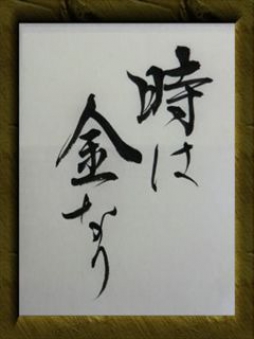 時は
金なり